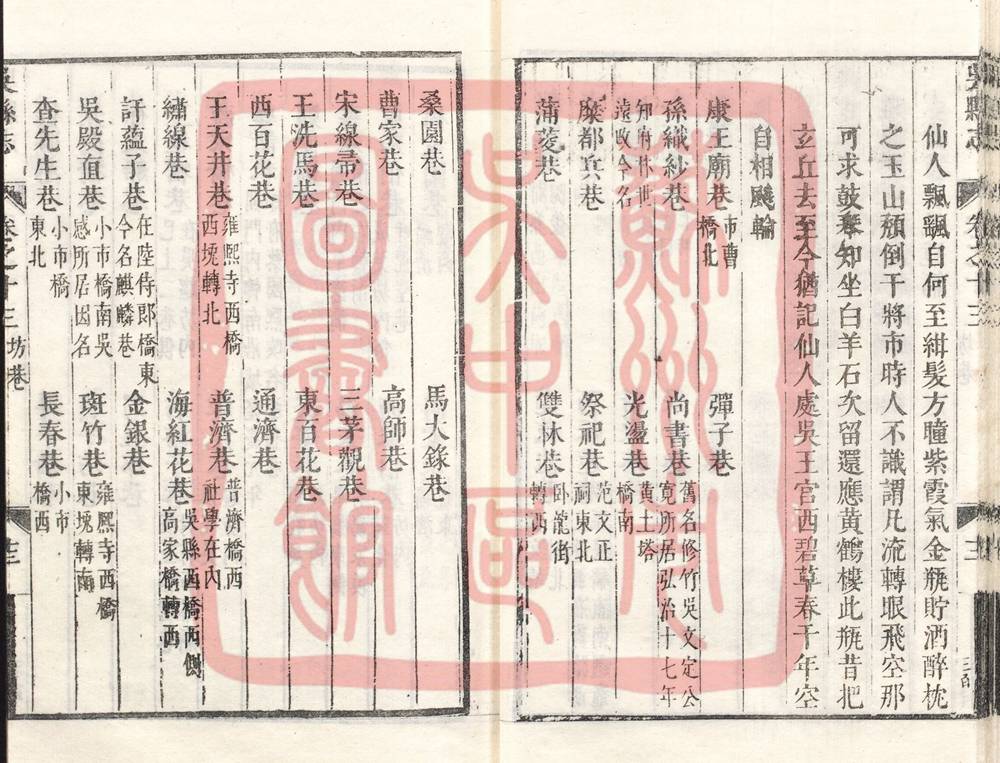 仙人飄飄自何至紺髮方瞳紫霞氣金瓶貯酒醉枕
之玉山頽倒干將市時人不識謂凡流轉眼飛空那
可求鼓琴知坐白羊石久留還應黃鶴樓此瓶昔把
玄丘去至今猶記仙人處吳王官西碧草春千年空
自相颷輪
康王廟巷市曹橋北
彈子巷
孫織紗巷
尚書巷舊名修竹吳文定公寬所居弘治十七年
知府林世遠改今名
糜都兵巷
光盪巷黃土塔橋南
祭祀巷范文正祠東北
蒲菱巷
雙林巷臥龍街轉西
桑園巷
馬大籙巷
曹家巷
高師巷
宋線帚巷
三茅觀巷
王洗馬巷
東百花巷
西百花巷
通濟巷
王天井巷雍熙寺西橋西堍轉北
普濟巷普濟橋西社學在內
繡線巷
海紅花巷吳縣西橋西側高家橋轉西
訐蘊子巷在陸侍郎橋東今名麒麟巷
金銀巷
吳殿直巷小市橋南吳感所居因名
斑竹巷雍熙寺西橋東堍轉南
查先生巷小市橋東北
長春巷小市橋西
吳縣志
卷之十三
坊巷